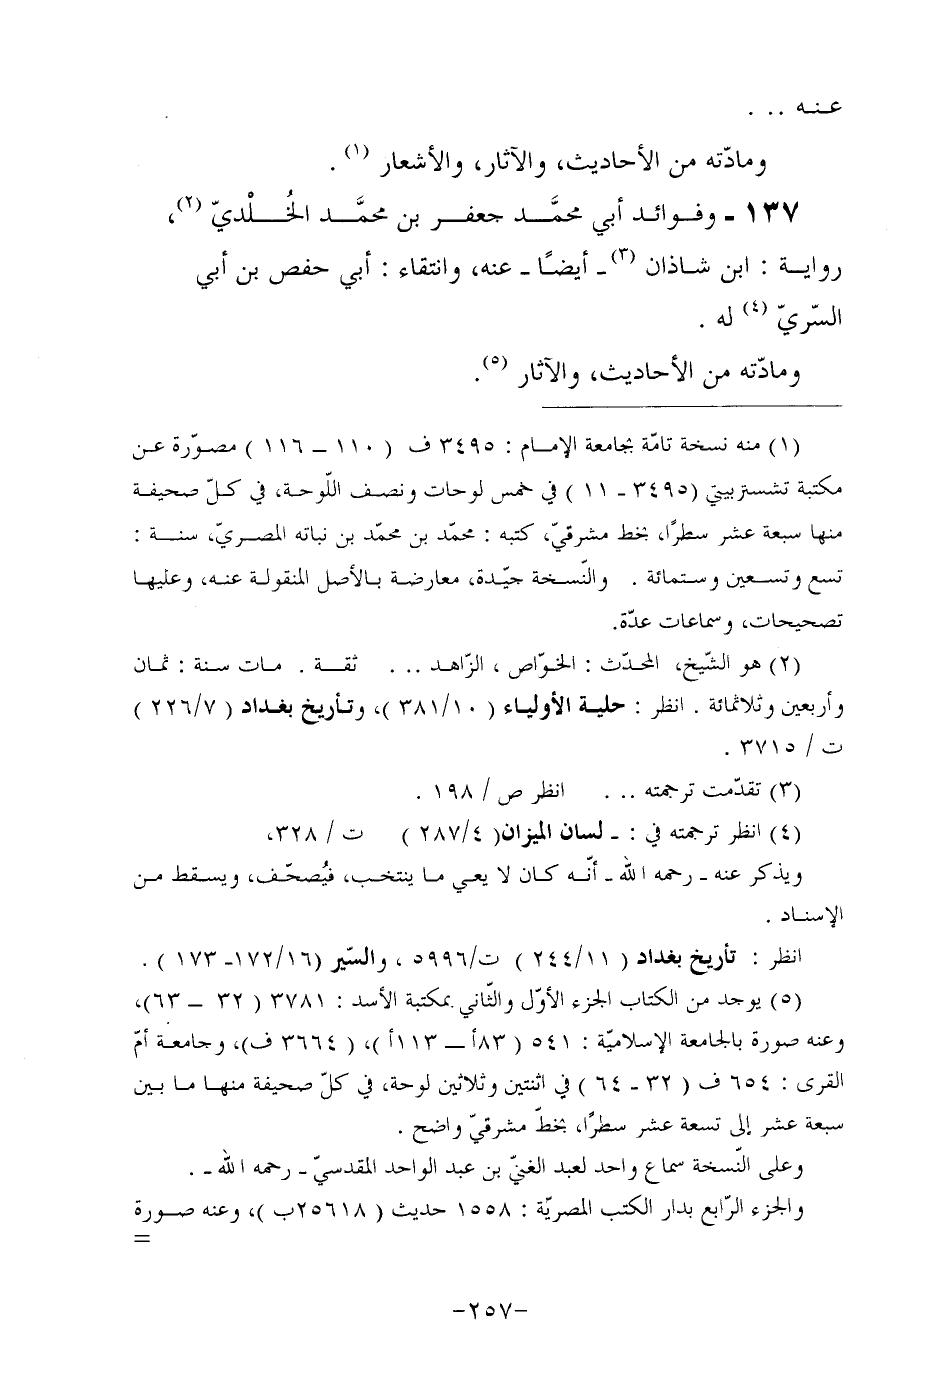 عنه .. .
ومادّته من الأحاديث، والآثار، والأشعار (١) .
١٣٧ ـ وفوائد أبي محمَّد جعفر بن محمَّد الخُلْديّ (٢)،
رواية : ابن شاذان (٣)ـ أيضًا ـ عنه، وانتقاء : أبي حفص بن أبي
السّريّ (٤) له .
ومادّته من الأحاديث، والآثار (٥).
(١) منه نسخة تامّة بجامعة الإمام : ٣٤٩٥ ف ( ١١٠ ـ ١١٦ ) مصوّرة عن
مكتبة تشستربيتي (٣٤٩٥ ـ ١١ ) في خمس لوحات ونصف اللّوحة، في كلّ صحيفة
منها سبعة عشر سطرًا، بخط مشرقيّ، كتبه : محمّد بن محمّد بن نباته المصريّ، سنة :
تسع وتسعين وستمائة . والنّسخة جيّدة، معارضة بالأصل المنقولة عنه، وعليها
تصحيحات، وسماعات عدّة.
(٢) هو الشّيخ، المحدّث : الخوّاص ، الزّاهد .. . ثقة . مات سنة : ثمان
وأربعين وثلاثمائة . انظر : حلية الأولياء ( ٣٨١/١٠ )، وتأريخ بغداد ( ٢٢٦/٧ )
ت / ٣٧١٥ .
(٣) تقدّمت ترجمته .. . انظر ص / ١٩٨ .
(٤) انظر ترجمته في : ـ لسان الميزان( ٢٨٧/٤ ) ت / ٣٢٨،
ويذكر عنه ـ رحمه الله ـ أنّه كان لا يعي ما ينتخب، فيُصحّف، ويسقط من
الإسناد .
انظر : تأريخ بغداد ( ٢٤٤/١١ ) ت/٥٩٩٦ ، والسّير (١٧٢/١٦ـ ١٧٣ ) .
(٥) يوجد من الكتاب الجزء الأوّل والثّاني بمكتبة الأسد : ٣٧٨١ ( ٣٢ ـ ٦٣)،
وعنه صورة بالجامعة الإسلاميّة : ٥٤١ ( ٨٣أ ـ ١١٣أ )، ( ٣٦٦٤ ف)، وجامعة أمّ
القرى : ٦٥٤ ف ( ٣٢ ـ ٦٤ ) في اثنتين وثلاثين لوحة، في كلّ صحيفة منها ما بين
سبعة عشر إلى تسعة عشر سطرًا، بخطّ مشرقيّ واضح .
وعلى النّسخة سماع واحد لعبد الغنيّ بن عبد الواحد المقدسيّ ـ رحمه الله ـ .
والجزء الرّابع بدار الكتب المصريّة : ١٥٥٨ حديث ( ٢٥٦١٨ب )، وعنه صورة
=
-٢٥٧-